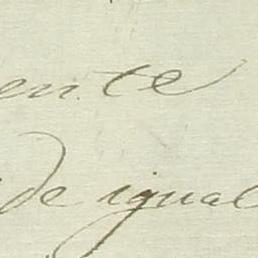 ente
de igual